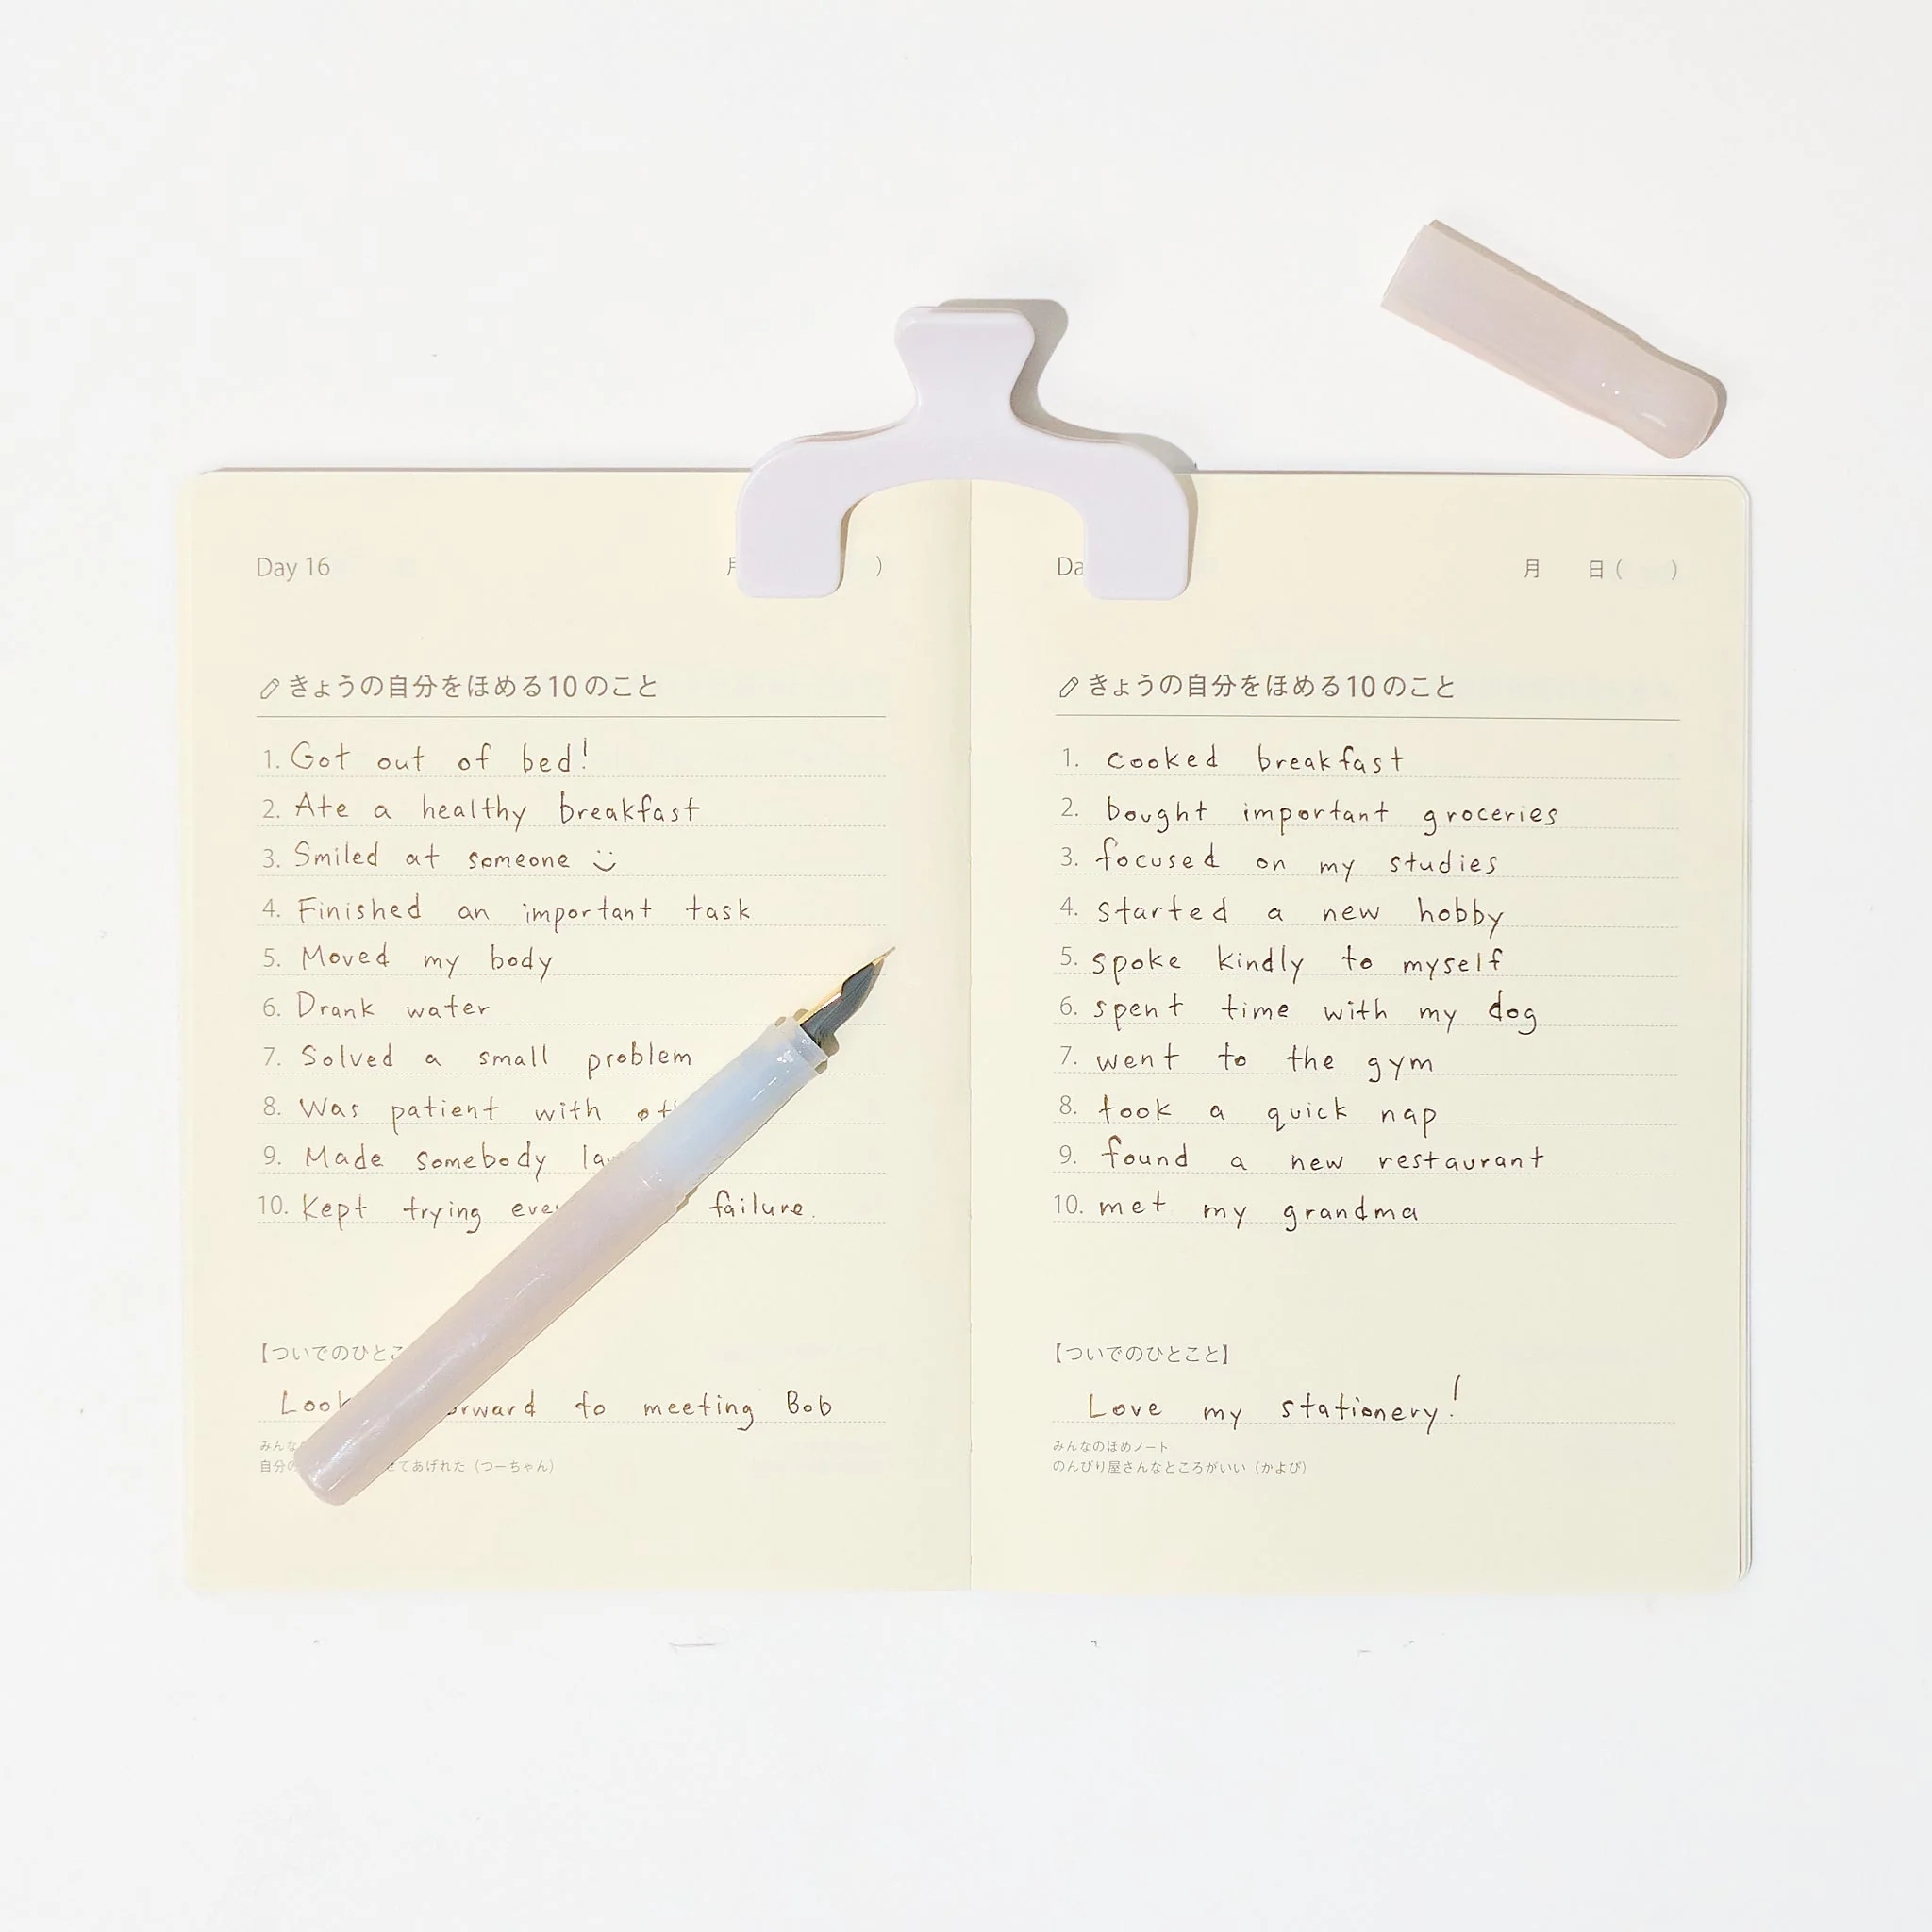 Day 16
月 )
きょうの自分をほめる10のこと
1. Got out of bed!
2. Ate a healthy breakfast
3. Smiled at someone
4. Finished an important task
5. Moved my body
6. Drank water
7. Solved a small problem
8. Was patient with
9. Made somebody
10. Kept trying failure.
【ついでのひとこ
to meeting Bob
みんな
自分の てあげれた（つーちゃん）
月 日( )
きょうの自分をほめる10のこと
1. cooked breakfast
2. bought important groceries
3. focused on my studies
4. started a new hobby
5. spoke kindly to myself
6. spent time with my dog
7. went to the gym
8. took a quick nap
9. found a new restaurant
10. met my grandma
【ついでのひとこと】
Love my stationery!
みんなのほめノート
のんびり屋さんなところがいい（かよぴ）